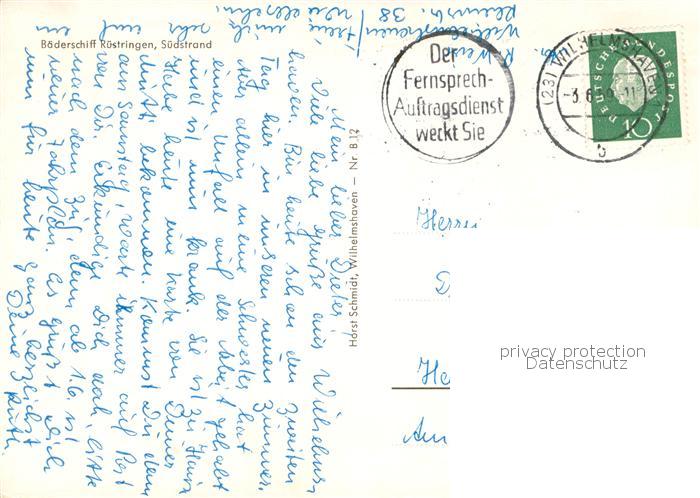 Bäderschiff Rüstringen, Südstrand
R. Wen
Wilhelmshaven/
Rheinstr. 38
Horst Schmidt, Wilhelmshaven – Nr. B 12
Der
Fernsprech-
Auftragsdienst
weckt Sie
(23) WILHELMSHAVEN
-3.6.59.-11
b
DEUTSCHE BUNDESPOST
10
Mein lieber Dieter!
Viele liebe Grüße aus Wilhelms-
haven. Bin heute schon den zweiten
Tag hier in unserem neuen Zimmer.
Vor allem, meine Schwester hat
einen Unfall auf der Arbeit gehabt
und ist nun krank. Sie ist zu Haus
Habe heute eine Karte von Deiner
Mutti bekommen. Kommst Du denn
am Samstag, warte immer auf Post
von Dir. Erkundige Dich doch bitte
nach dem Zug, denn ab 1.6. ist
neuer Fahrplan. Es grüßt Dich
nun für heute ganz herzlichst
Deine
Ruth.
Herrn
D
He
Am
privacy protection
Datenschutz